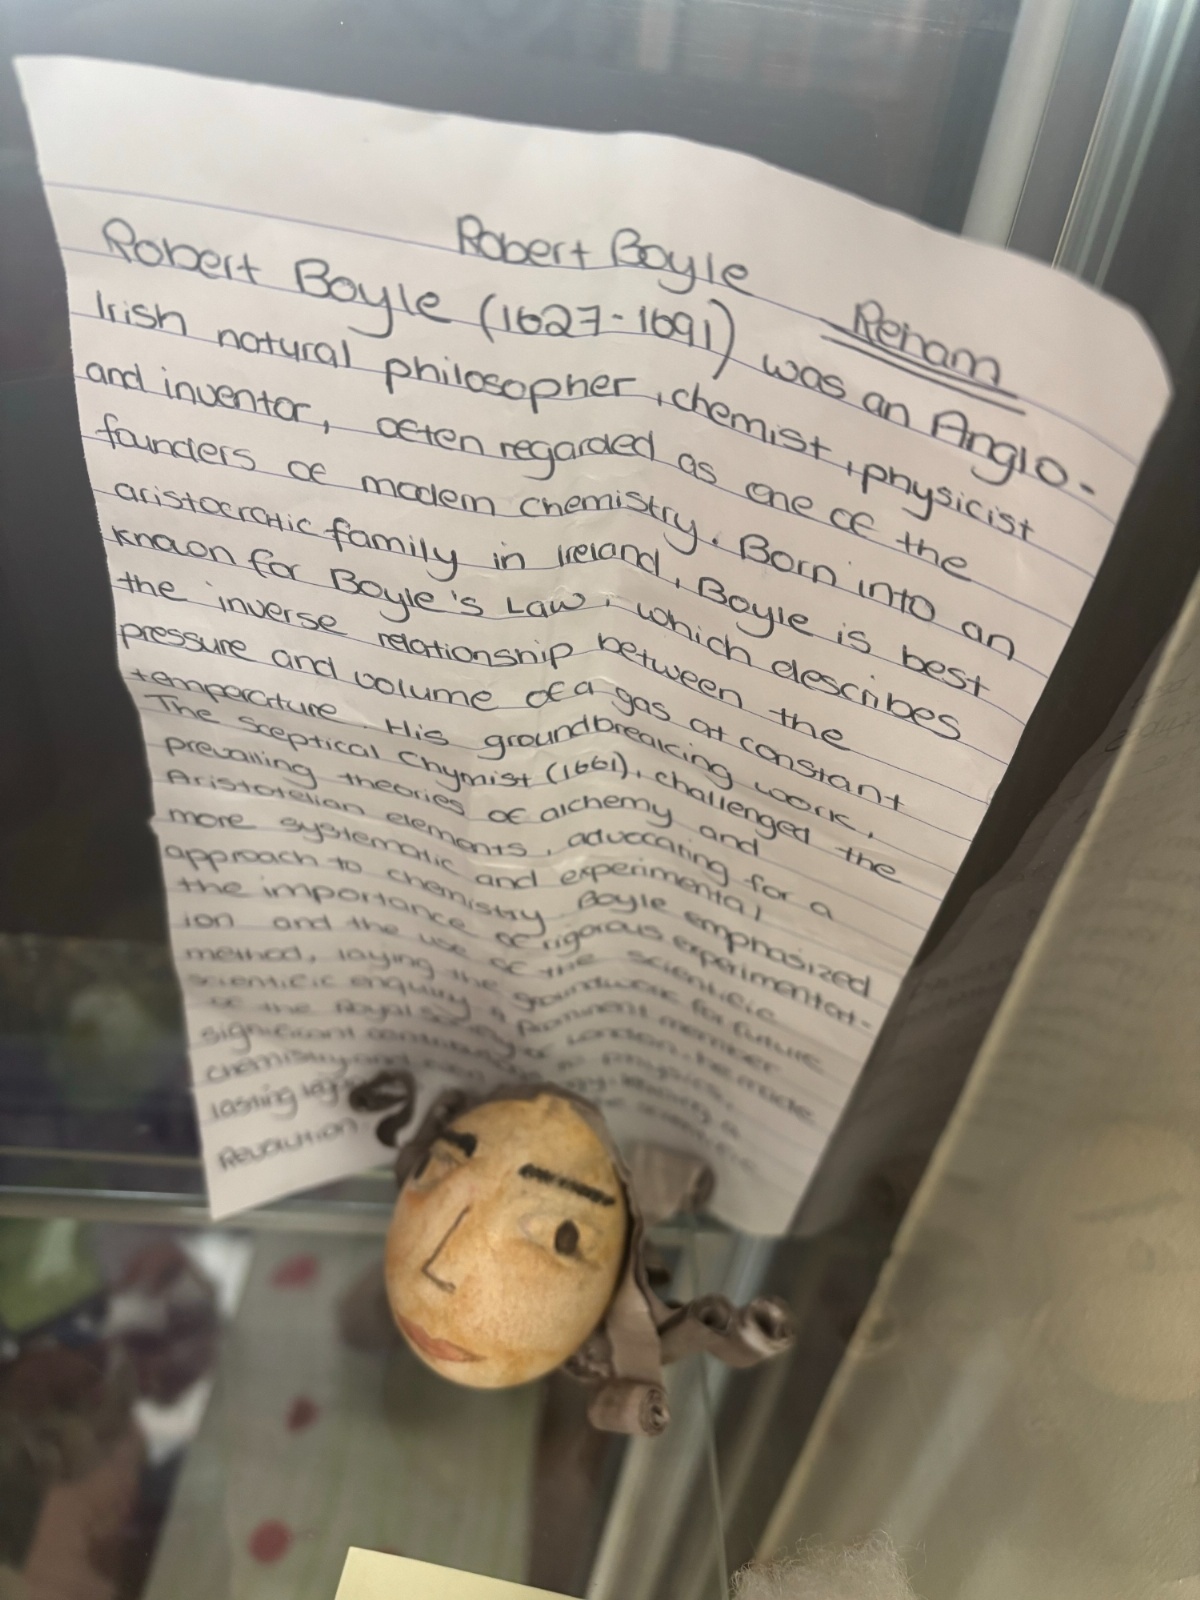 Robert Boyle
Reham
Robert Boyle (1627-1691) was an Anglo-
Irish natural philosopher, chemist, physicist
and inventor, often regarded as one of the
founders of modern chemistry. Born into an
aristocratic family in Ireland, Boyle is best
known for Boyle's Law, which describes
the inverse relationship between the
pressure and volume of a gas at constant
temperature. His groundbreaking work,
The Sceptical Chymist (1661), challenged the
prevailing theories of alchemy and
Aristotelian elements, advocating for a
more systematic and experimental
approach to chemistry. Boyle emphasized
the importance of rigorous experimentat-
ion and the use of the scientific
method, laying the groundwork for future
scientific enquiry a prominent member
of the Royal society of London, he made
significant to physics,
chemistry and
lasting
Revolution